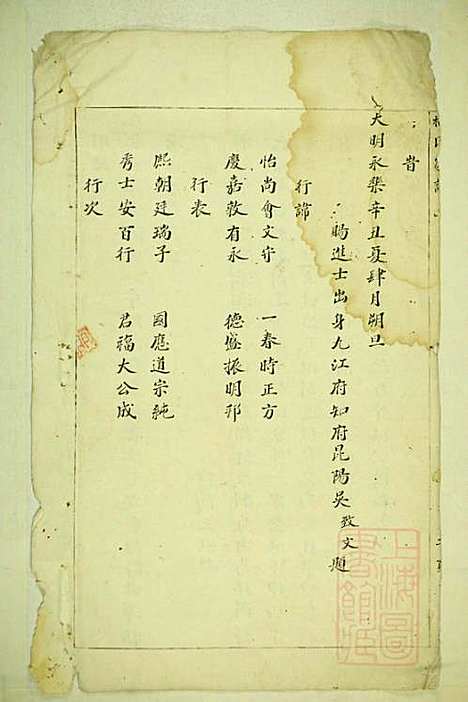 旹
大明永樂辛丑夏肆月朔旦
賜進士出身九江府知府昆陽吳敬文題
行諱
怡尚會文守 一春時正方
慶嘉敦有永 德盛振明邦
行表
熙朝廷瑞子 國應道宗純
秀士安百行 君福大公成
行次
上海圖書館藏